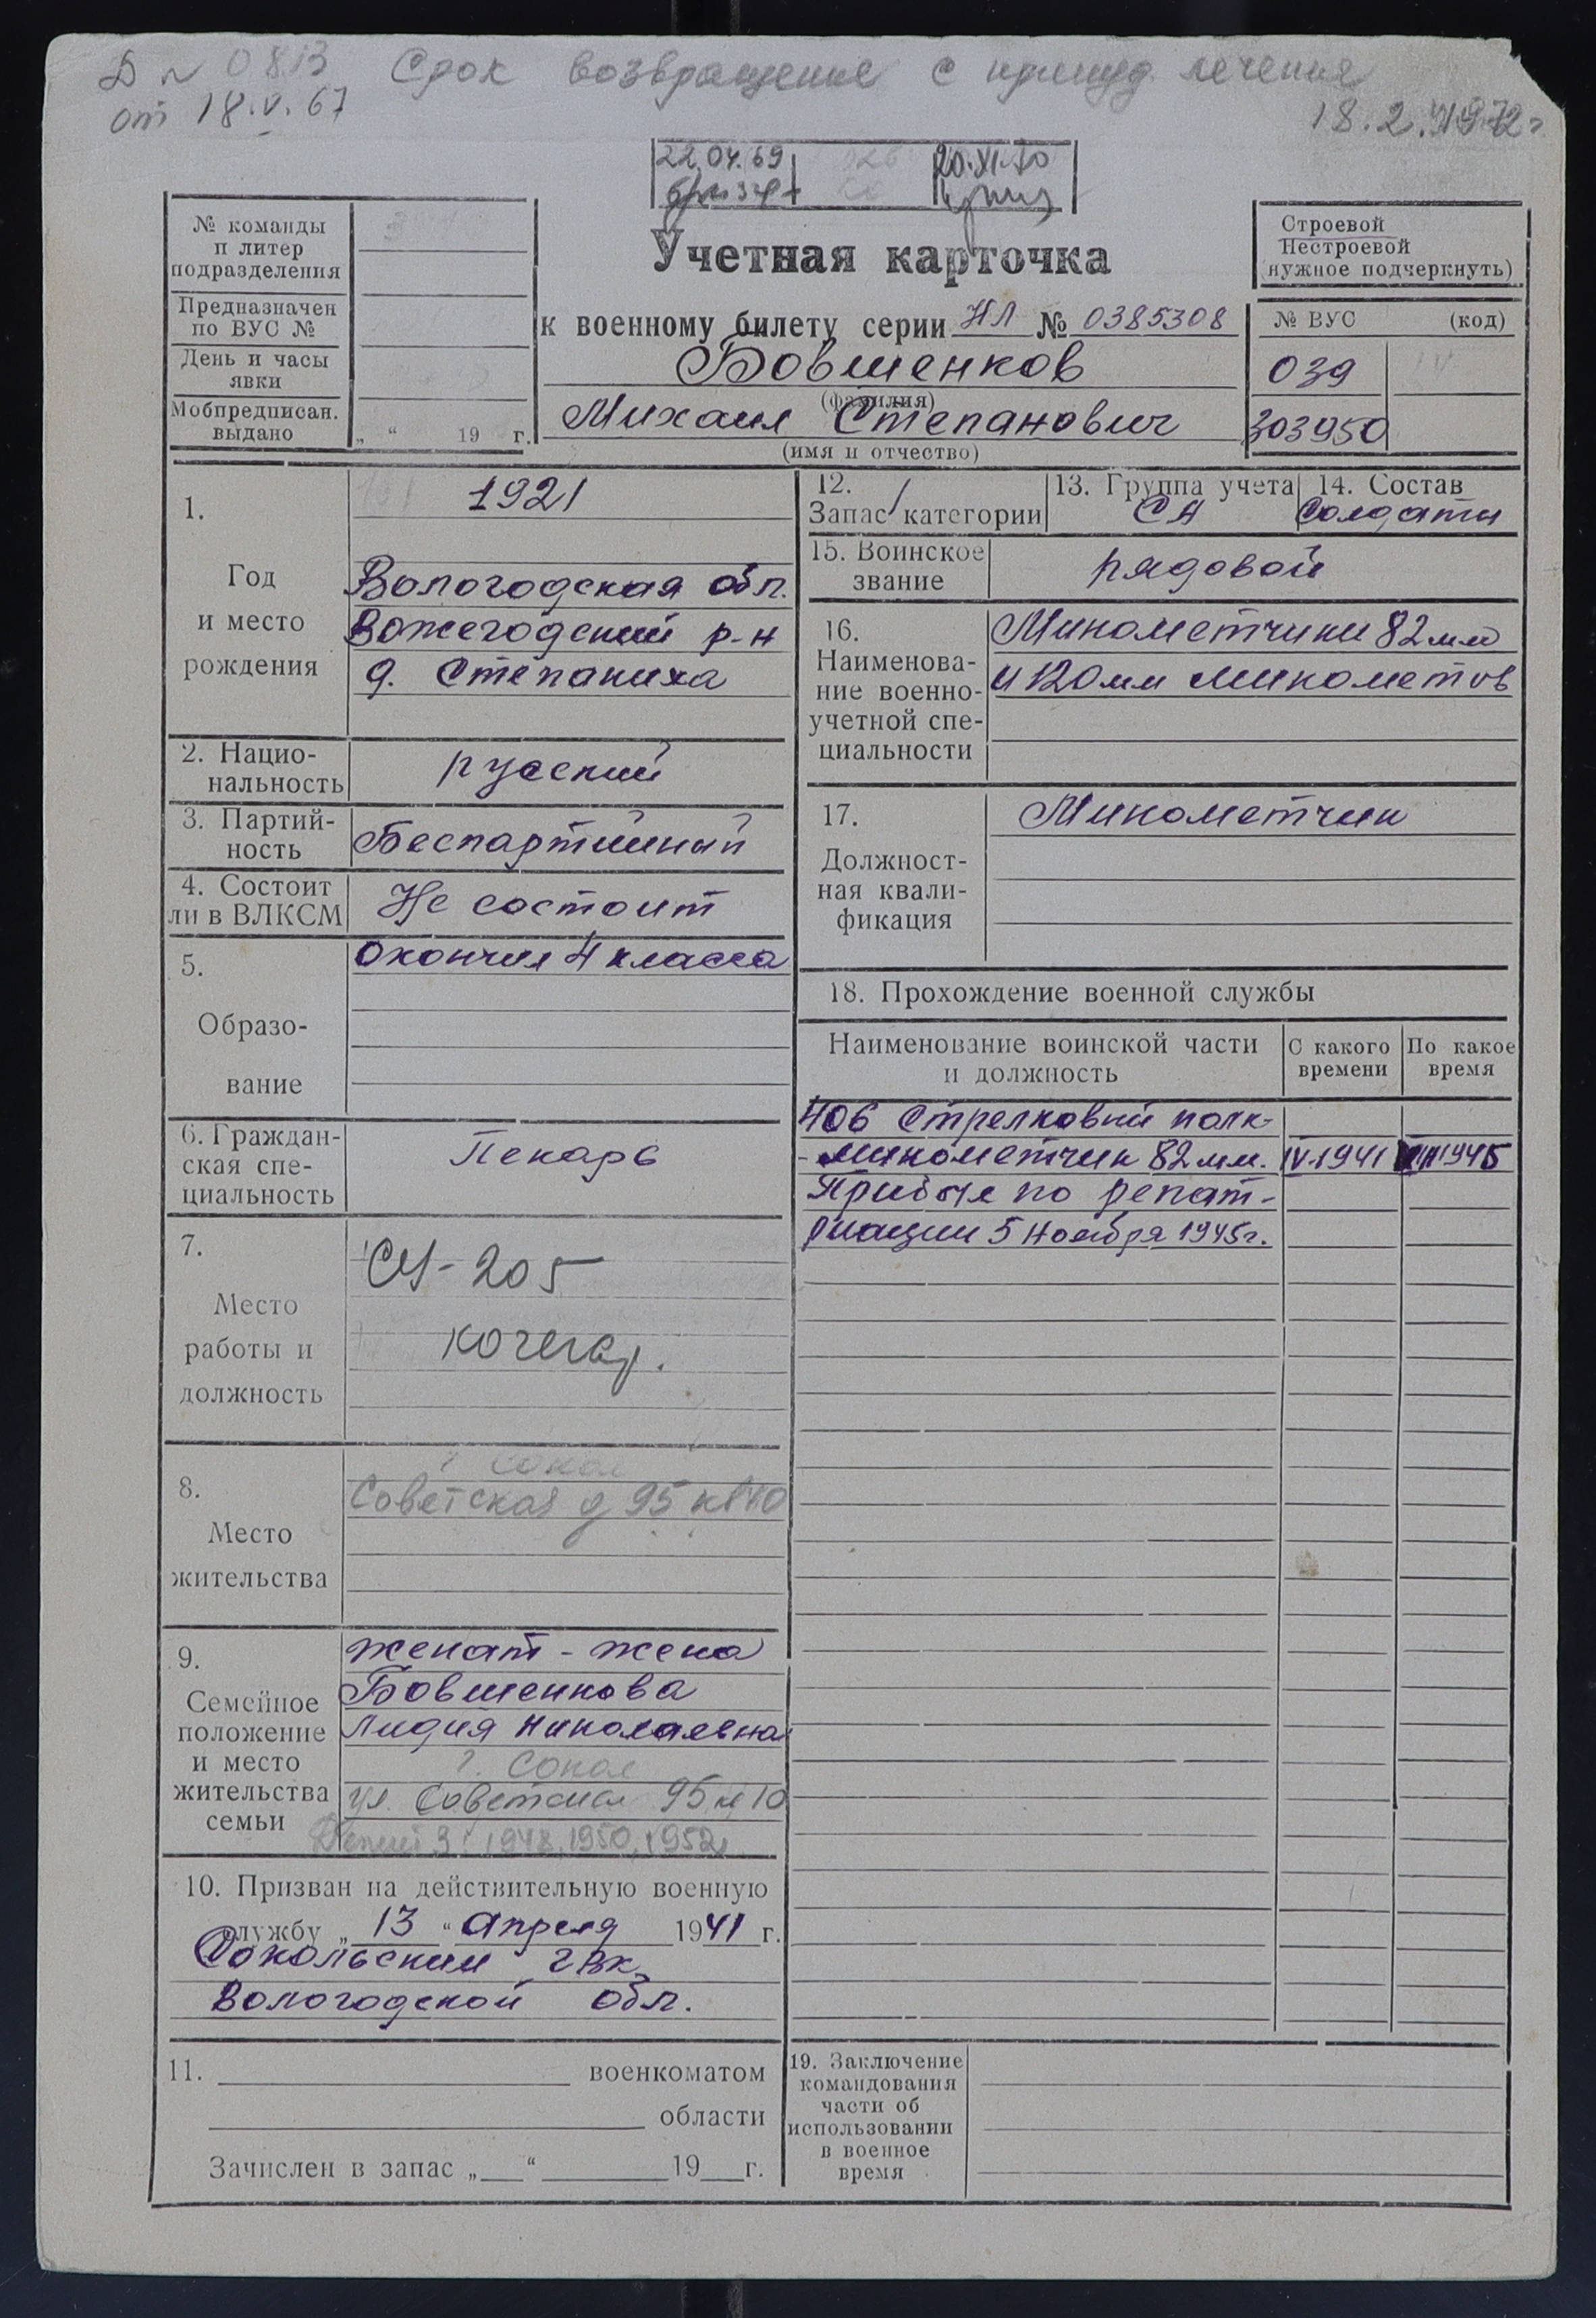 Д № 0813 Срок возвращения с принуд. лечения
от 18.V.67
18.2.1972г
22.04.69
20.XI.70
№ команды
п литер
подразделения
Предназначен
по ВУС №
День и часы
явки
Мобпредписан.
выдано
„ “ 19 г.
Учетная карточка
к военному билету серии НЛ № 0385308
Бовшенков
(фамилия)
Михаил Степанович
(имя и отчество)
Строевой
Нестроевой
(нужное подчеркнуть)
№ ВУС (код)
039
303950
1.
Год
и место
рождения
1921
Вологодская обл.
Вожегодский р-н
д. Степаниха
2. Нацио-
нальность
русский
3. Партий-
ность
Беспартийный
4. Состоит
ли в ВЛКСМ
Не состоит
5.
Образо-
вание
Окончил 4 класса
6. Граждан-
ская спе-
циальность
Пекарь
7.
Место
работы и
должность
СУ-205
кочегар.
8.
Место
жительства
г Сокол
Советская д 95 кв 10
9.
Семейное
положение
и место
жительства
семьи
женат - жена
Бовшенкова
Лидия Николаевна
г. Сокол
ул. Советская 95 кв 10
Детей 3: 1948, 1950, 1952
10. Призван на действительную военную
службу „ 13 “ апреля 1941 г.
Сокольским ГВК
Вологодской обл.
11. военкоматом
области
Зачислен в запас „ “ 19 г.
12. /
Запас категории
13. Группа учета
СА
14. Состав
Солдаты
15. Воинское
звание
рядовой
16.
Наименова-
ние военно-
учетной спе-
циальности
Минометчики 82мм
и 120мм минометов
17.
Должност-
ная квали-
фикация
Минометчик
18. Прохождение военной службы
Наименование воинской части
и должность
С какого
времени
По какое
время
406 Стрелковый полк-
-минометчик 82мм. IV-1941 1945
Прибыл по репат-
риации 5 ноября 1945г.
19. Заключение
командования
части об
использовании
в военное
время